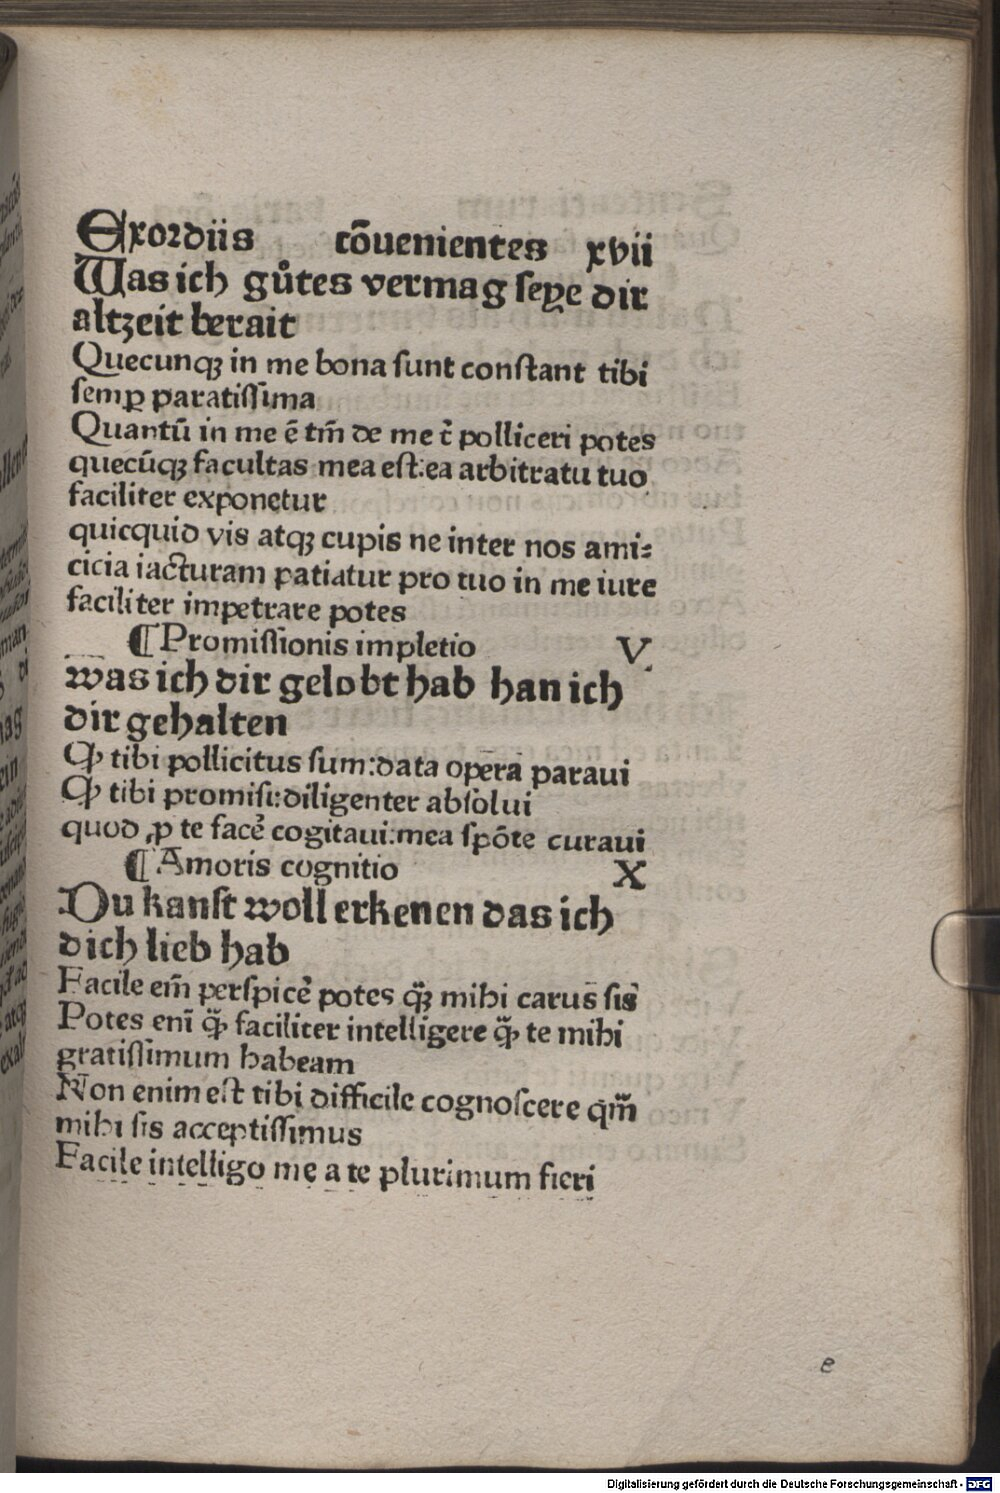 Exordiis cōuenientes xvii
Was ich gůtes vermag seye dir
altzeit berait
Quecunqꝫ in me bona sunt constant tibi
semꝑ paratissima
Quantū in me ē tm̄ de me t̄ polliceri potes
quecūqꝫ facultas mea est:ea arbitratu tuo
faciliter exponetur
quicquid vis atqꝫ cupis ne inter nos ami⸗
cicia iacturam patiatur pro tuo in me iure
faciliter impetrare potes
¶ Promissionis impletio V.
was ich dir gelobt hab han ich
dir gehalten
Ꝙ tibi pollicitus sum:data opera paraui
Ꝙ tibi promisi:diligenter absolui
quod ꝓ te facē cogitaui:mea spōte curaui
¶ Amoris cognitio X
Du kanst woll erkenen das ich
dich lieb hab
Facile em̄ perspicē potes qꝫ̄ mihi carus sis
Potes eni̅ ꝙ̄ faciliter intelligere ꝙ̄ te mihi
gratissimum habeam
Non enim est tibi difficile cognoscere qm̄
mihi sis acceptissimus
Facile intelligo me a te plurimum fieri
e
Digitalisierung gefördert durch die Deutsche Forschungsgemeinschaft - DFG